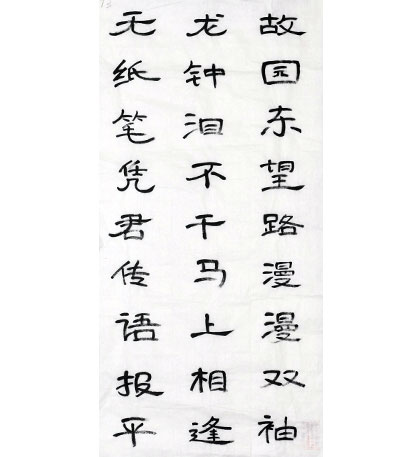 故园东望路漫漫双袖
龙钟泪不干马上相逢
无纸笔凭君传语报平